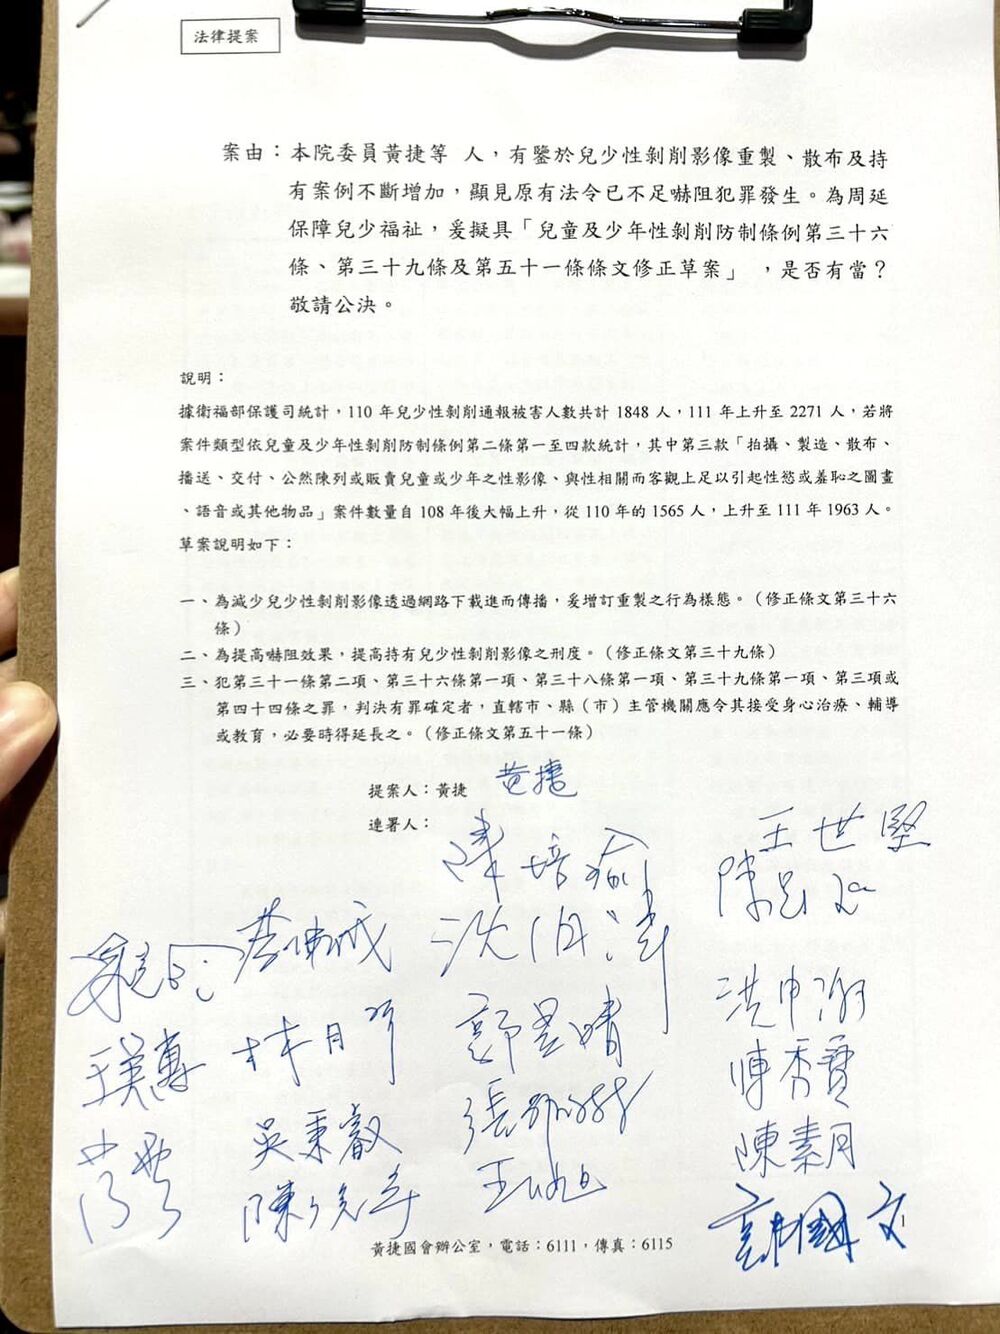 法律提案
案由：本院委員黃捷等 人，有鑒於兒少性剝削影像重製、散布及持
有案例不斷增加，顯見原有法令已不足嚇阻犯罪發生。為周延
保障兒少福祉，爰擬具「兒童及少年性剝削防制條例第三十六
條、第三十九條及第五十一條條文修正草案」 ，是否有當？
敬請公決。
說明：
據衛福部保護司統計，110 年兒少性剝削通報被害人數共計 1848 人，111 年上升至 2271 人，若將
案件類型依兒童及少年性剝削防制條例第二條第一至四款統計，其中第三款「拍攝、製造、散布、
播送、交付、公然陳列或販賣兒童或少年之性影像、與性相關而客觀上足以引起性慾或羞恥之圖畫
、語音或其他物品」案件數量自 108 年後大幅上升，從 110 年的 1565 人，上升至 111 年 1963 人。
草案說明如下：
一、為減少兒少性剝削影像透過網路下載進而傳播，爰增訂重製之行為樣態。（修正條文第三十六
條）
二、為提高嚇阻效果，提高持有兒少性剝削影像之刑度。（修正條文第三十九條）
三、犯第三十一條第二項、第三十六條第一項、第三十八條第一項、第三十九條第一項、第三項或
第四十四條之罪，判決有罪確定者，直轄市、縣（市）主管機關應令其接受身心治療、輔導
或教育，必要時得延長之。（修正條文第五十一條）
提案人：黃捷 黃捷
連署人：
陳培瑜 王世堅
沈伯洋
郭昱晴 洪申翰
林月琴 陳秀寳
王美惠
吳秉叡 陳素月
1
黃捷國會辦公室，電話：6111，傳真：6115